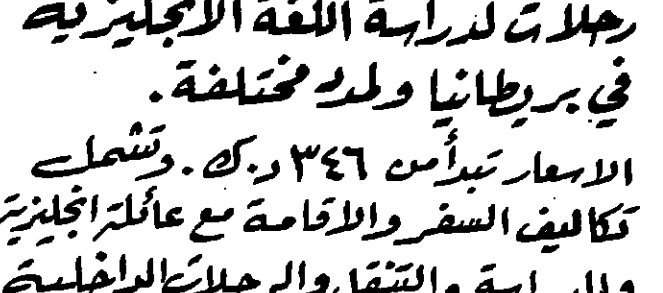 رحلات لدراسة اللغة الانجليزية
في بريطانيا ولمدد مختلفة.
الاسعار تبدأ من ٣٤٦ د.ك. وتشمل
تكاليف السفر والاقامة مع عائلة انجليزية
والدراسة والتنقل والرحلات الداخلية